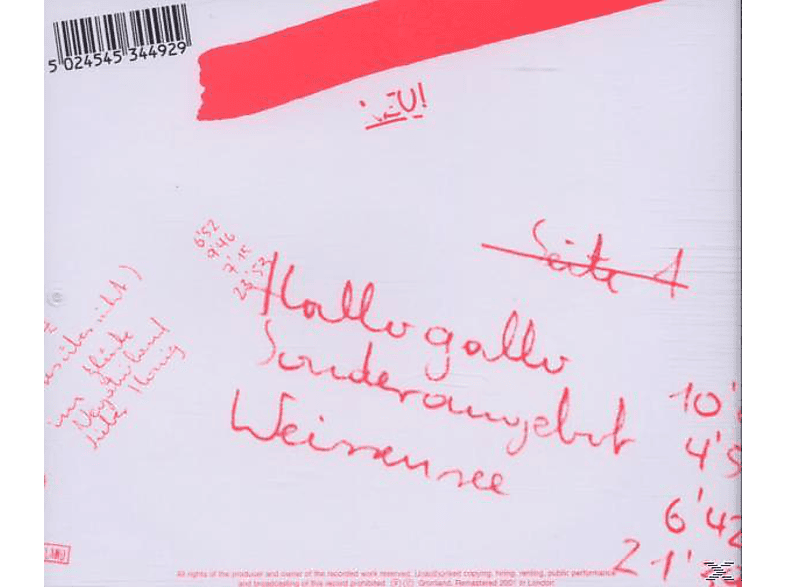 5 024545 344929
NEU!
6'52
9'46
7'15
23'53
Seite 1
Hallogallo
Sonderangebot
Weissensee
10'
4'5
6'42
21'
im Glück
Negativland
All rights of the producer and owner of the recorded work reserved. Unauthorised copying, hiring, renting, public performance
and broadcasting of this record prohibited. Ⓟ © Grönland, Remastered 2001 in London